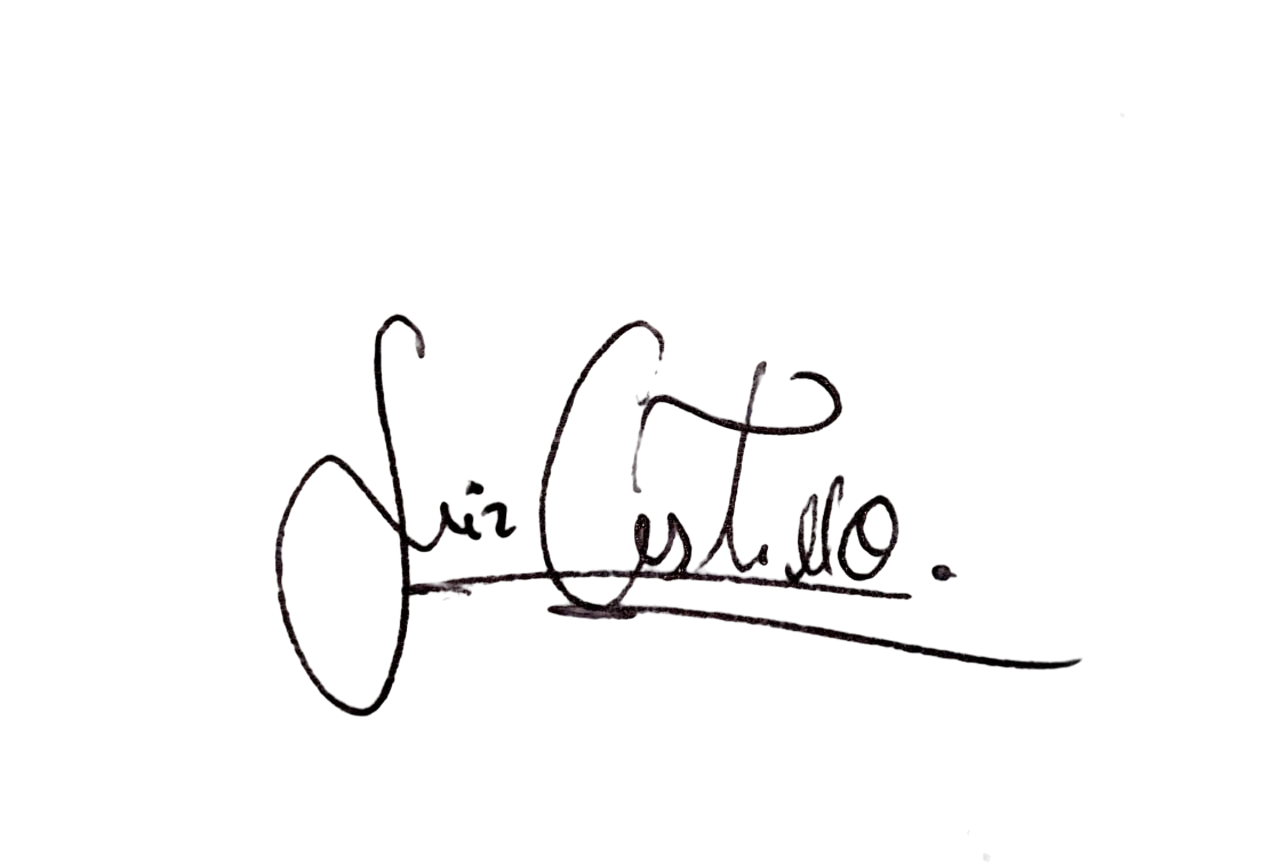 Luiz Castillo.